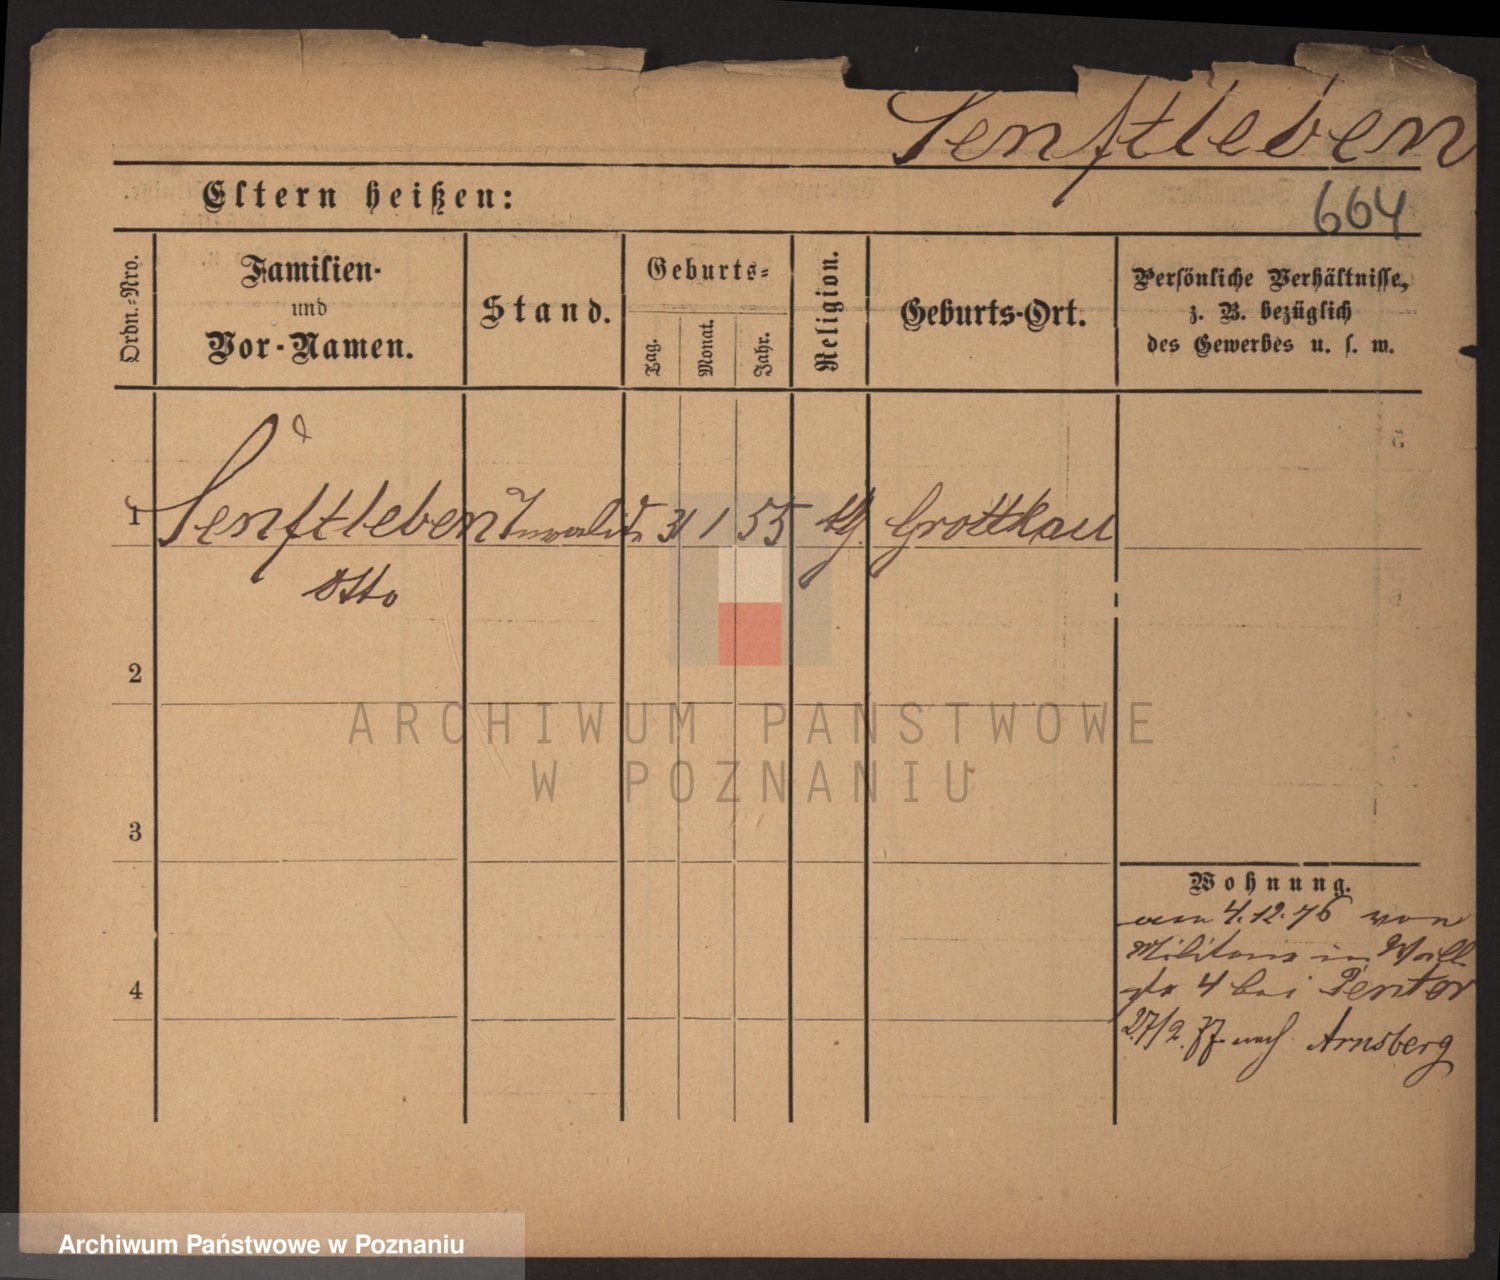 Senftleben
Eltern heißen:
664
Ordn.-Nro.
Familien-
und
Vor-Namen.
Stand.
Geburts-
Tag.
Monat.
Jahr.
Religion.
Geburts-Ort.
Persönliche Verhältnisse,
z. B. bezüglich
des Gewerbes u. s. w.
1 Senftleben Invalide 31 1 55 Grottkau
Otto
2
3
4
Wohnung.
am 4.12.76 von
Militair in Wall
str 4 bei Pentor
27/2. 77 nach Arnsberg
ARCHIWUM PAŃSTWOWE
W POZNANIU
Archiwum Państwowe w Poznaniu